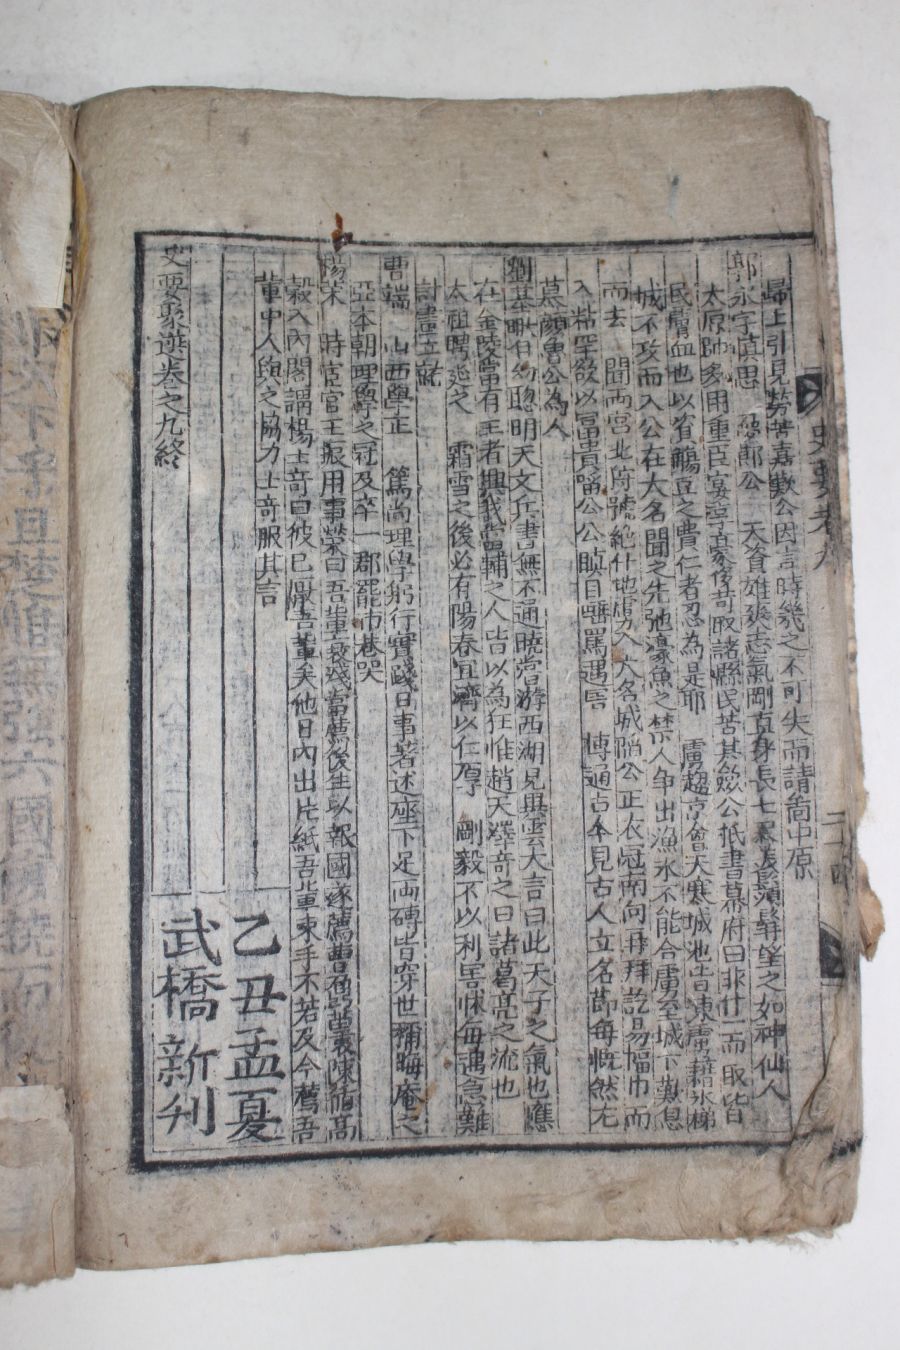 歸上引見勞苦嘉歎公因言時幾之不可失而請啇中原
郭永字愼思 諡郞公 天資雄爽志氣剛直身長七尺美鬚髥望之如神仙人
太原帥多用重臣宴享豪侈苛取諸縣民苦其歛公抵書幕府曰非什一而取皆
民膏血也以省觴豆之費仁者忍為是耶 虜趨京會天寒城池皆凍虜藉氷梯
城不攻而入公在大名聞之先弛濠魚之禁人争出漁氷不能合虜至城下歎息
而去 聞两宮北狩號絶什地虜入大名城陷公正衣冠南向再拜訖易幅巾而
入粘罕欲以冨貴啗公公瞋目唾罵遇害 博通占今見古人立名節每慨然尤
慕顔魯公為人
劉基 明 幼聦明天文兵書無不通曉甞游西湖見異雲大言曰此天子之氣也應
在金陵當有王者興我當輔之人皆以為狂惟趙天澤奇之曰諸葛亮之流也
太祖聘延之 霜雪之後必有陽春宜濟以仁厚 剛毅不以利害怵每遇急難
計畫立就
曹端 山西學正 篤尚理學躬行實踐日事著述座下足両磚皆穿世稱晦庵之
亞本朝理學之冠及卒一郡罷市巷哭
楊荣 時宦官王振用事荣曰吾輩衰殘當薦後生以報國遂薦曹鼐苗衷陳循高
穀入內閣謂楊士竒曰彼已厭吾輩矣他日內出片紙吾輩束手不若及今薦吾
輩中人與之協力士竒服其言
史要聚選卷之九終
乙丑孟夏
武橋新刋
史要卷九
二十四